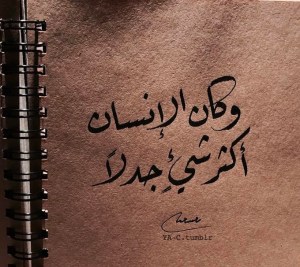 وكان الإنسان
أكثر شيءٍ جدلاً
YA-C.tumblr